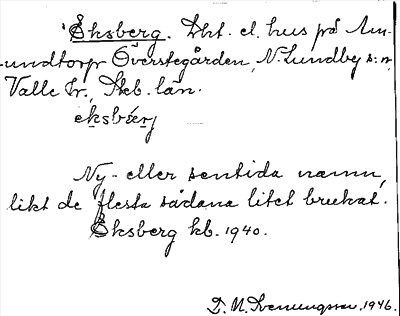 Eksberg. Lht. el. hus på Am-
undtorp Överstegården, N. Lundby s:n,
Valle hr., Skb. län.
eksbærj
Ny- eller sentida namn,
likt de flesta sådana litet brukat.
Eksberg kb. 1940.
D. N. Svenungsson. 1946.